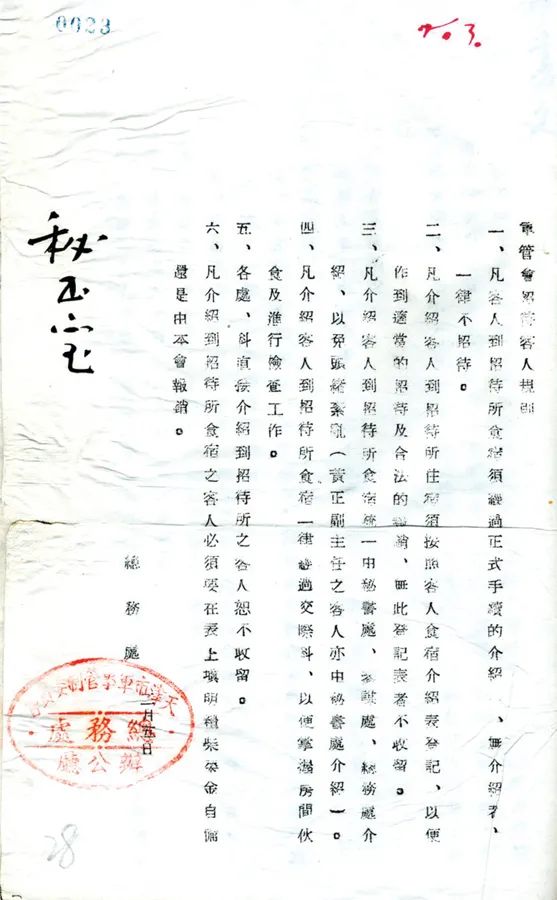 0023
軍管會招待客人規則
一、凡客人到招待所食宿須經過正式手續的介紹、無介紹者、
一律不招待。
二、凡介紹客人到招待所住宿須按照客人食宿介紹表登記、以便
作到適當的招待及合法的報銷、無此登記表者不收留。
三、凡介紹客人到招待所食宿統一由秘書處、參謀處、總務處介
紹、以免頭緒紊亂(黃正副主任之客人亦由秘書處介紹)。
四、凡介紹客人到招待所食宿一律經過交際科、以便掌握房間伙
食及進行檢查工作。
五、各處、科直接介紹到招待所之客人恕不收留。
六、凡介紹到招待所食宿之客人必須要在表上填明糧柴菜金自備
還是由本會報銷。
總務處
二月五日
天津市軍事管制委員會
總務處
辦公廳
28